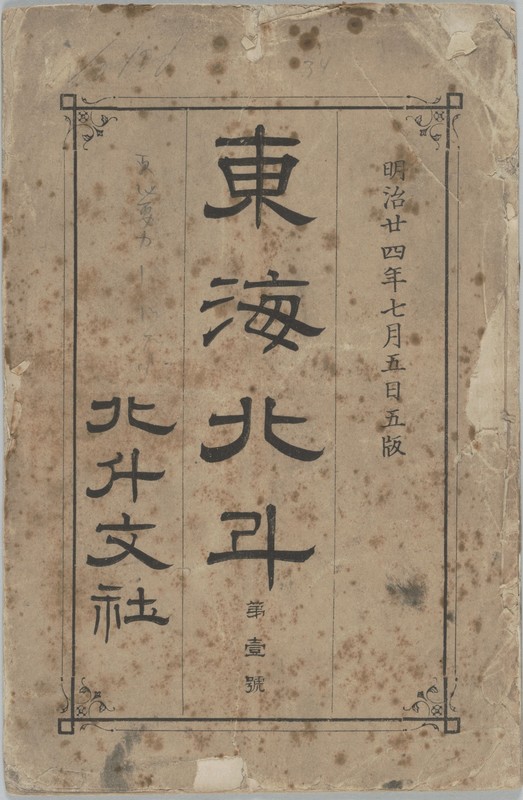 明治廿四年七月五日五版
東海北斗
第壹號
北斗文社